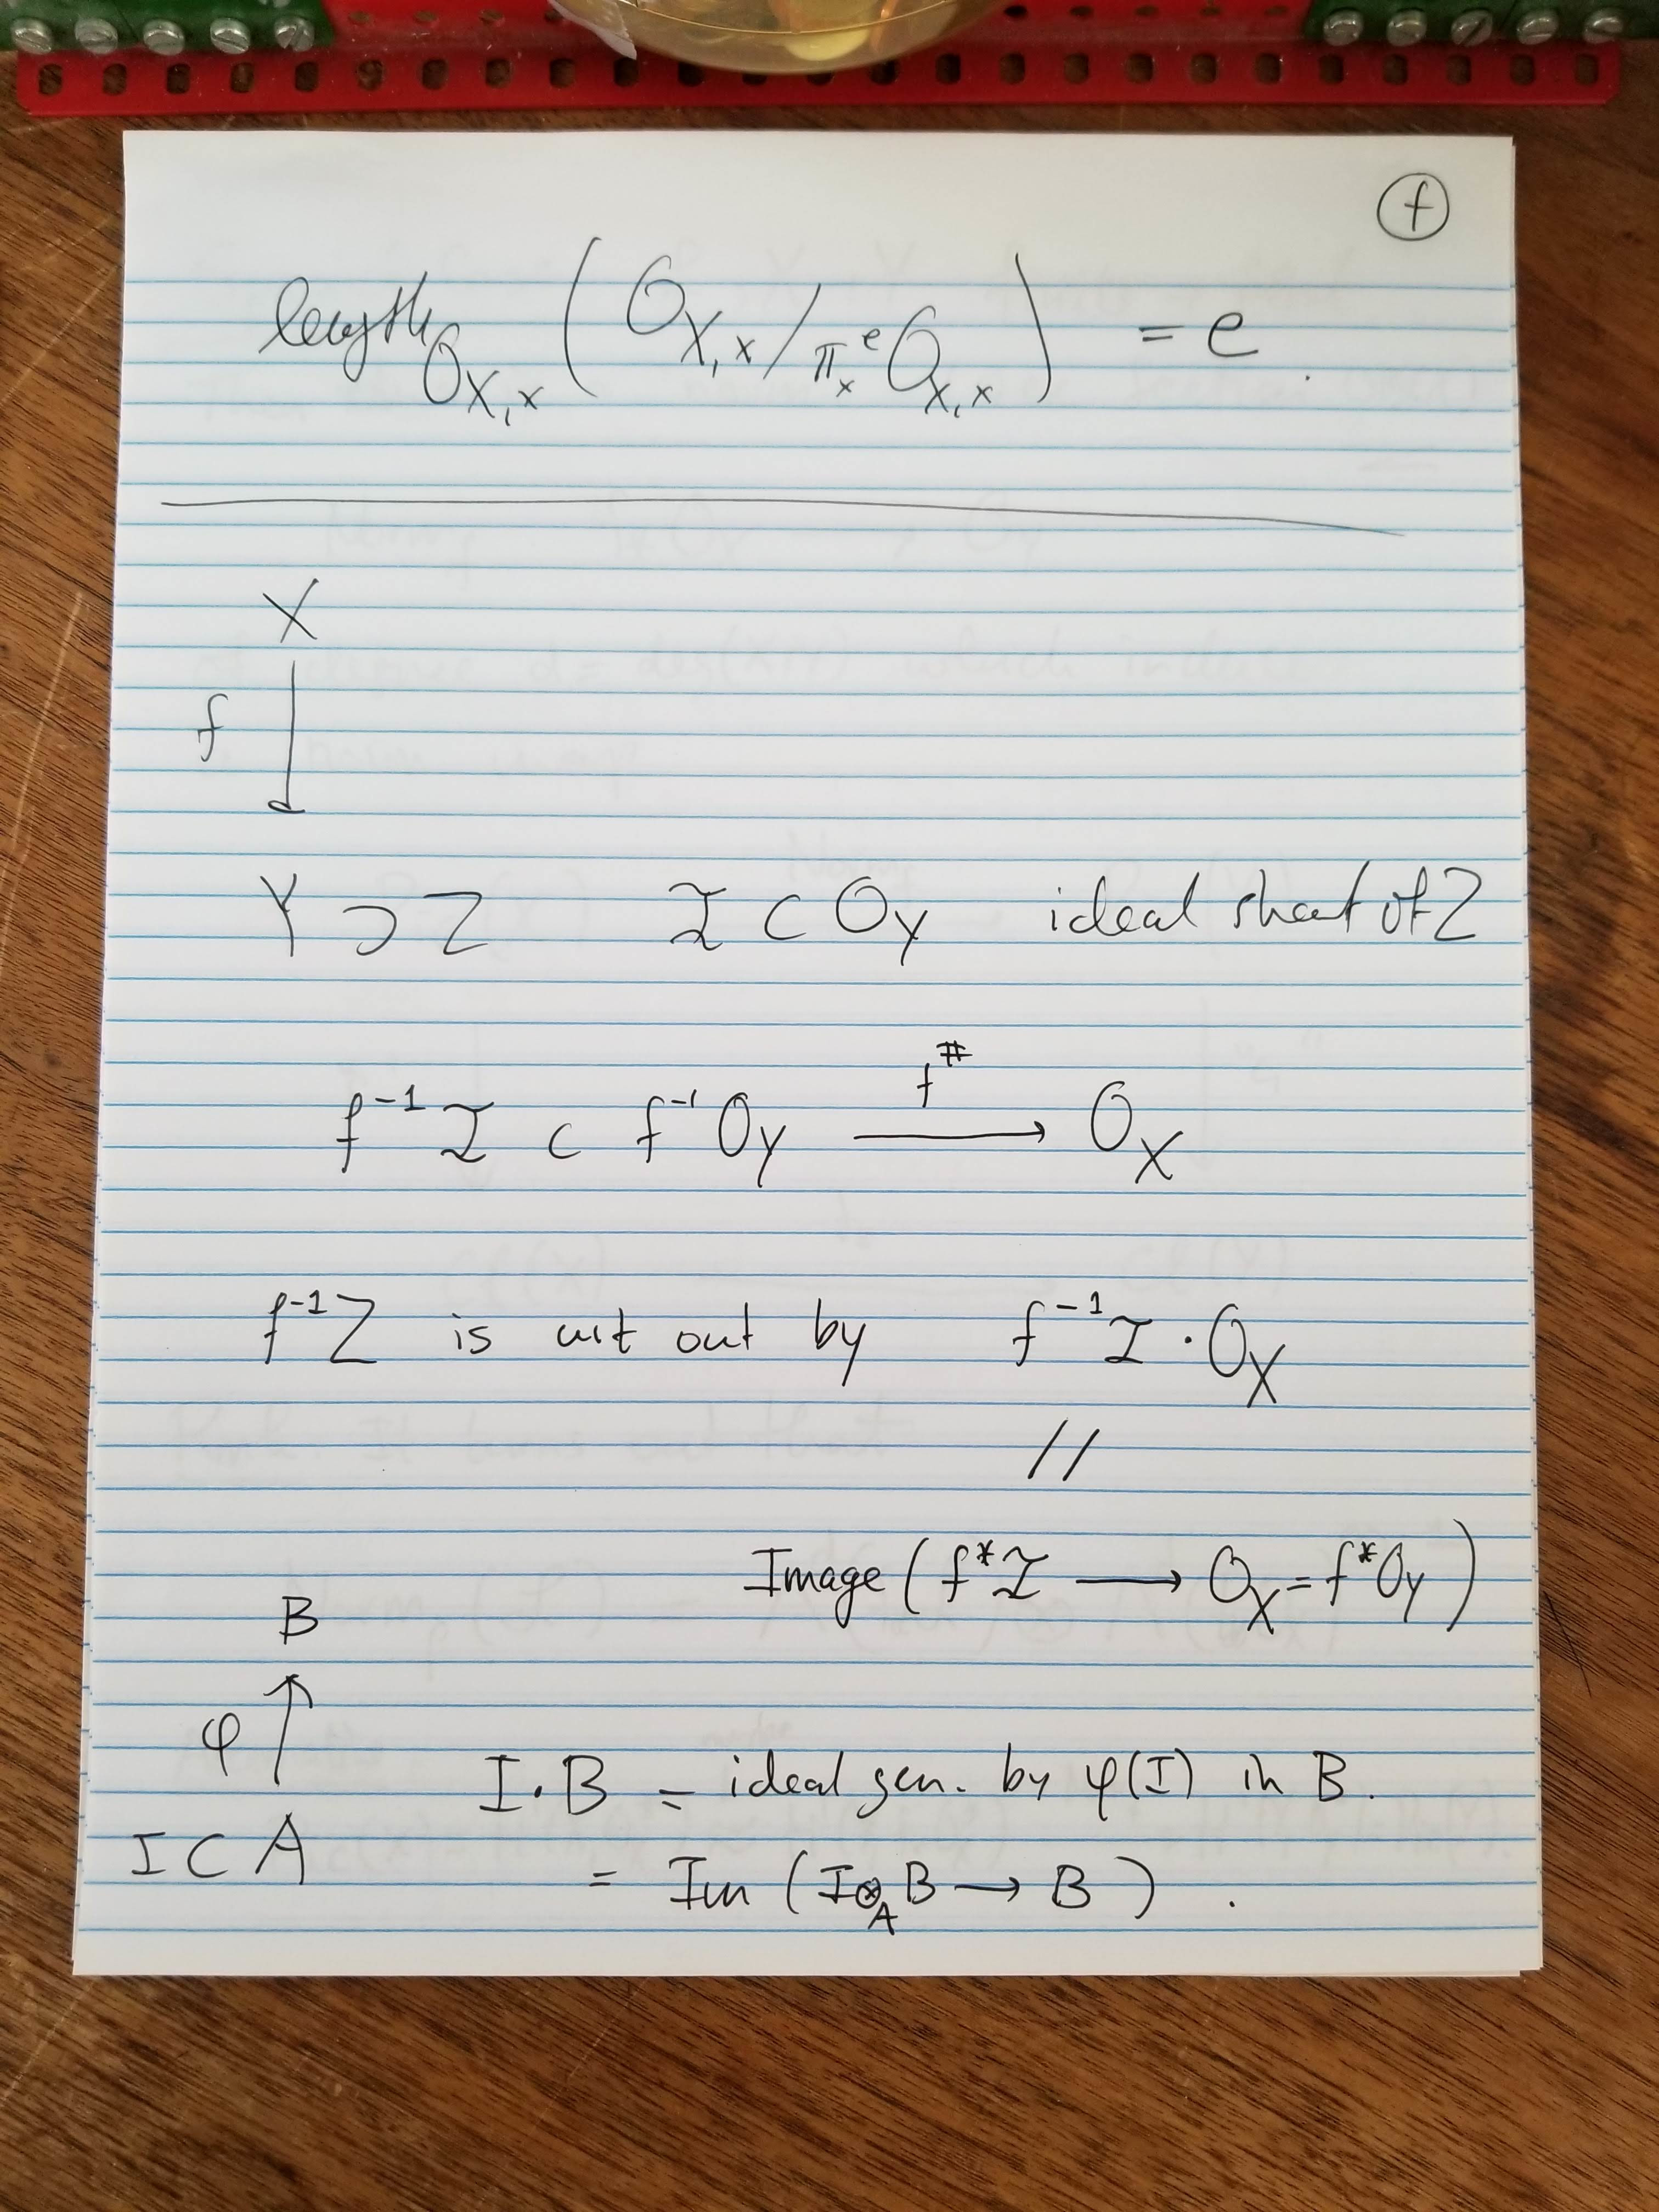 f
length_{O_{X,x}} ( O_{X,x} / π_x^e O_{X,x} ) = e .
X
f ↓
Y ⊃ Z   I ⊂ O_Y   ideal sheaf of Z
f⁻¹ I ⊂ f⁻¹ O_Y —f^#→ O_X
f⁻¹Z is cut out by f⁻¹ I · O_X
//
Image ( f*I → O_X = f*O_Y )
B
φ ↑
I · B = ideal gen. by φ(I) in B.
I ⊂ A
= Im ( I ⊗_A B → B ) .